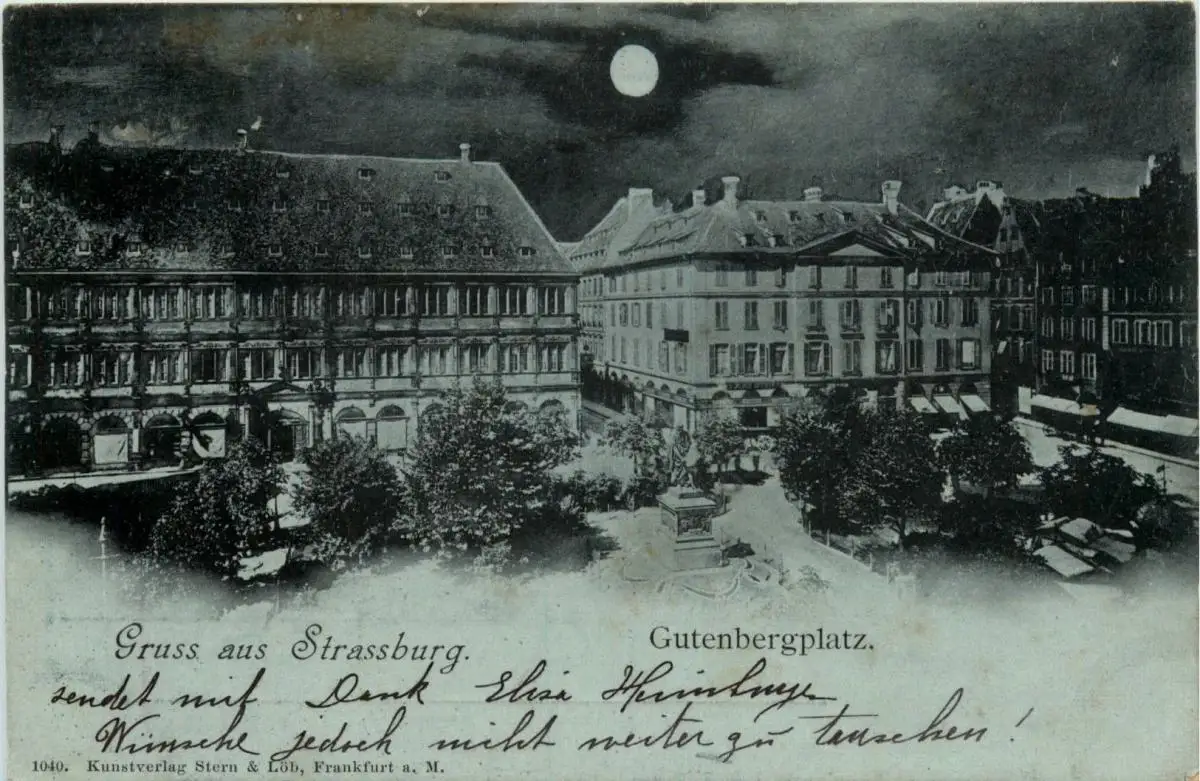 Gruss aus Strassburg.
Gutenbergplatz.
sendet mit Dank Elisa
Wünsche jedoch nicht weiter zu tauschen!
1040. Kunstverlag Stern & Löb, Frankfurt a. M.